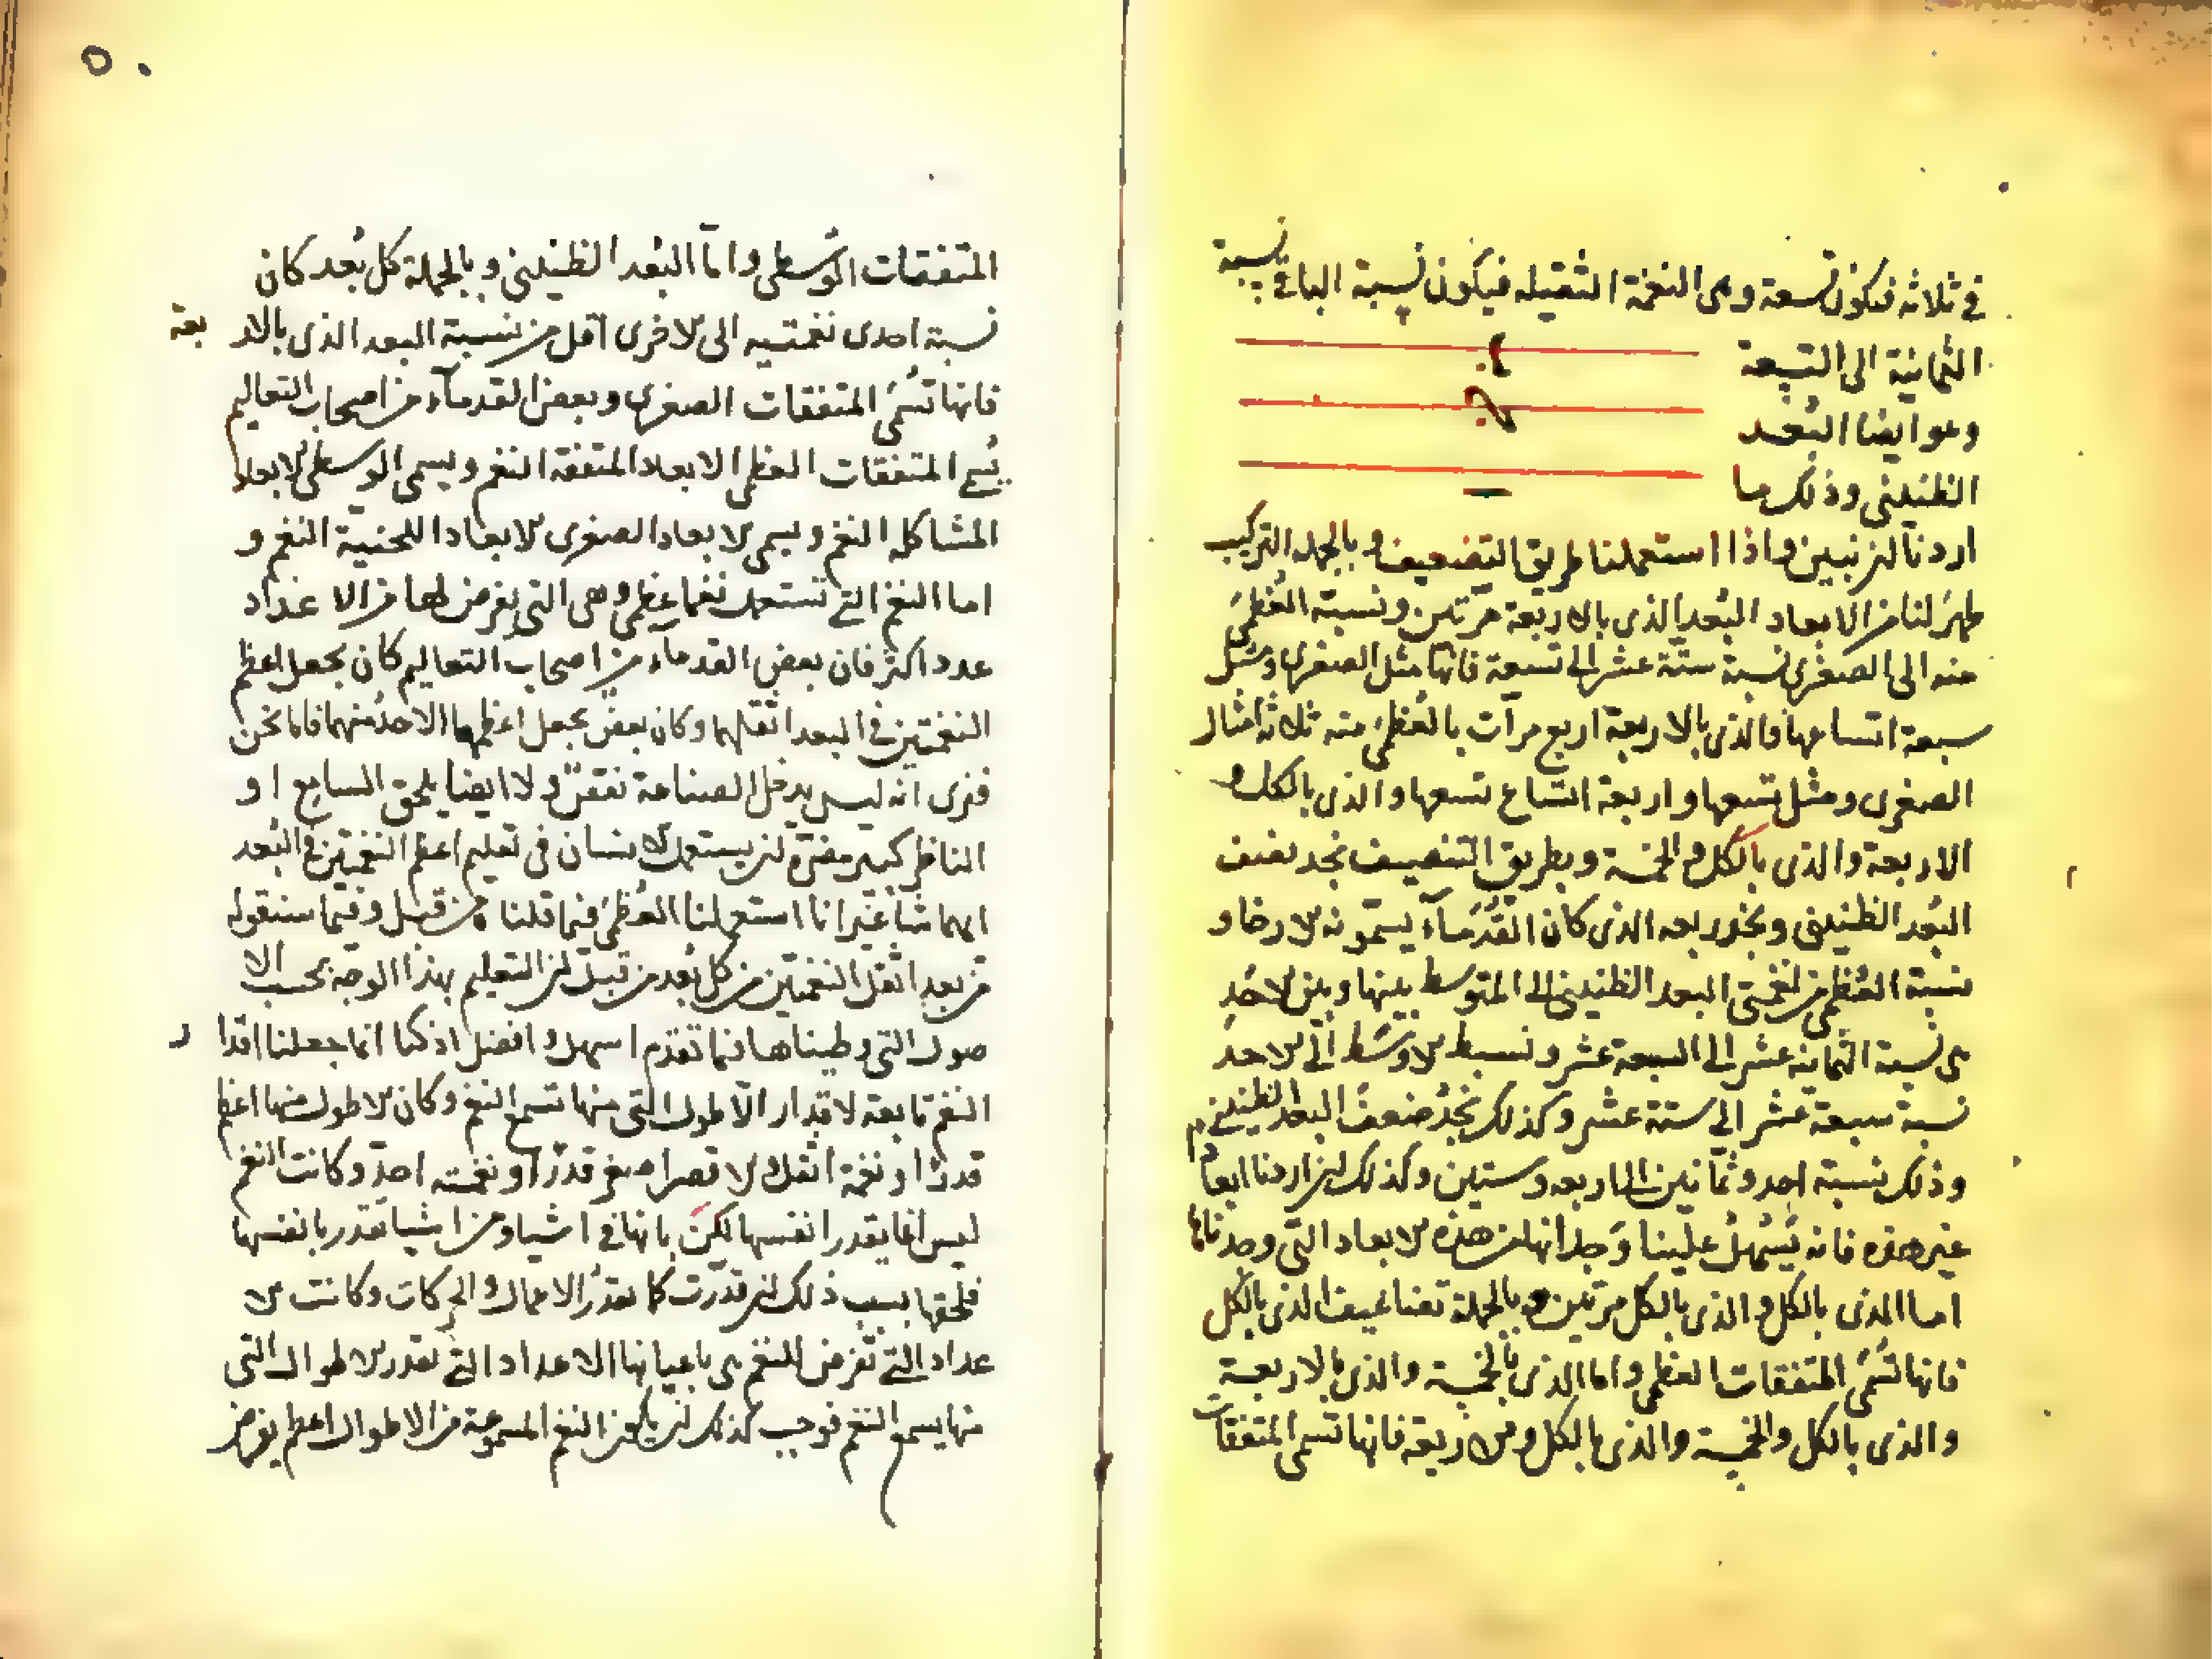 في ثلاثه فيكون تسعة وهى النغمة الثقيله فيكون نسبة الباقي نسبة
الثمانية الى التسعة
وهو ايضا البُعد
الطنينى وذلك ما
اردنا ان نبين واذا استعملنا طريق التضعيف وبالجمله التركيب
ظهر لنا من الابعاد البُعد الذى بالاربعة مرّتين ونسبة العُظمى
منه الى الصغرى نسبة ستّة عشر الى تسعة فانها مثل الصغرى ومثل
سبعة اتساعها والذى بالاربعة اربع مرات بالعُظمى منه ثلاثة امثال
الصغرى ومثل تسعها واربعة اتساع تسعها والذى بالكل و
الاربعة والذى بالكل والخمسة وبطريق التنصيف نجد نصف
البُعد الطنينى ونجد ربعه الذى كان القُدَماء يسمّونه الارخا و
نسبة العُظمى من نغمتى البعد الطنينى الى المتوسط بينها وبين الاحد
هى نسبة الثمانية عشر الى السبعة عشر ونسبة الاوسَط الى الاحدّ
نسبة سبعة عشر الى ستة عشر وكذلك نجدُ ضعفَ البعد الطنينى
وذلك نسبة احد وثمانين الى اربعه وستين وكذلك ان اردنا ابعادًا
غير هذه فانه يَسْهلُ علينا وَجدانها من هذه الابعاد التى وجدناها
اما الذى بالكل والذى بالكل مرّتين وبالجملة تضاعيف الذى بالكل
فانها تُسَمّى المتفقات العظمى واما الذى بالخمسة والذى بالاربعة
والذى بالكل والخمسة والذى بالكل والاربعة فانها تسمى المتفقات
٥٠
المتفقات الوُسطى وامّا البُعد الطنينى وبالجملة كل بُعد كان
نسبة احدى نغمتيه الى الاخرى اقل من نسبة البعد الذى بالاربعة
فانها تسُمّى المتفقات الصغرى وبعض القدماء من اصحاب التعاليم
يُسمى المتفقات العظمى الابعاد المتفقة النغم ويسمى الوسطى الابعاد
المشاكله النغم ويسمى الابعاد الصغرى الابعاد اللحنيّة النغم و
اما النغم التى تستعمل نغما عظمى وهى التى يفرض لها من الاعداد
عدد اكثر فان بعض القدماء من اصحاب التعاليم كان يجعل اعظم
النغمتين فى البعد اثقلهما وكان بعضٌ يجعل اعظمهما الاحدُ منهما فاما نحن
فنرى انه ليس يدخل الصناعة نقصٌ ولا ايضا يلحق السامع او
الناظر كبير مضرّة ان يستعمل الانسان فى تعليم اعظم النغمتين فى البُعد
ايهما شا غير انا استعملنا العُظمى فيما قلنا من قبل وفيما سنقوله
من بعد اثقل النغمتين من كل بُعد من قبل ان التعليم بهذا الوجه بحسب الا
صول التى وطيناها فيما تقدّم اسهل وافضل اذ كنا انما جعلنا اقدار
النغم تابعة لاقدار الاطوال التى منها تسمع النغم وكان الاطول منها اعظم
قدرًا ونغمة اثقل والاقصر اصغر قدرًا ونغمته احدّ وكانت النغم
ليس انما يقدر انفسها لكن بانها فى اشيا ومن اشيا تقدر بانفسها
فلحقها بسبب ذلك ان قدّرت كما تقدّر الاعمال والحركات وكانت الا
عداد التى تفرض للنغم هى باعيانها الاعداد التى تقدر الاطوال التى
منها يسمع النغم فوجب كذلك ان يكون النغم المسموعة من الاطوال اعظم يفرض